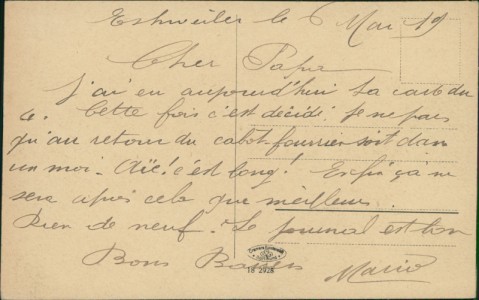 Eshweiler le 6 Mai 19
Cher Papa
J'ai eu aujourd'hui ta carte du
4. Cette fois c'est décidé. Je ne pars
qu'au retour du cabot fourrier soit dans
un mois. Aïe! c'est long! Enfin ça ne
sera après cela que meilleur.
Rien de neuf. Le journal est bon
Bons Baisers
Mario
18 2928